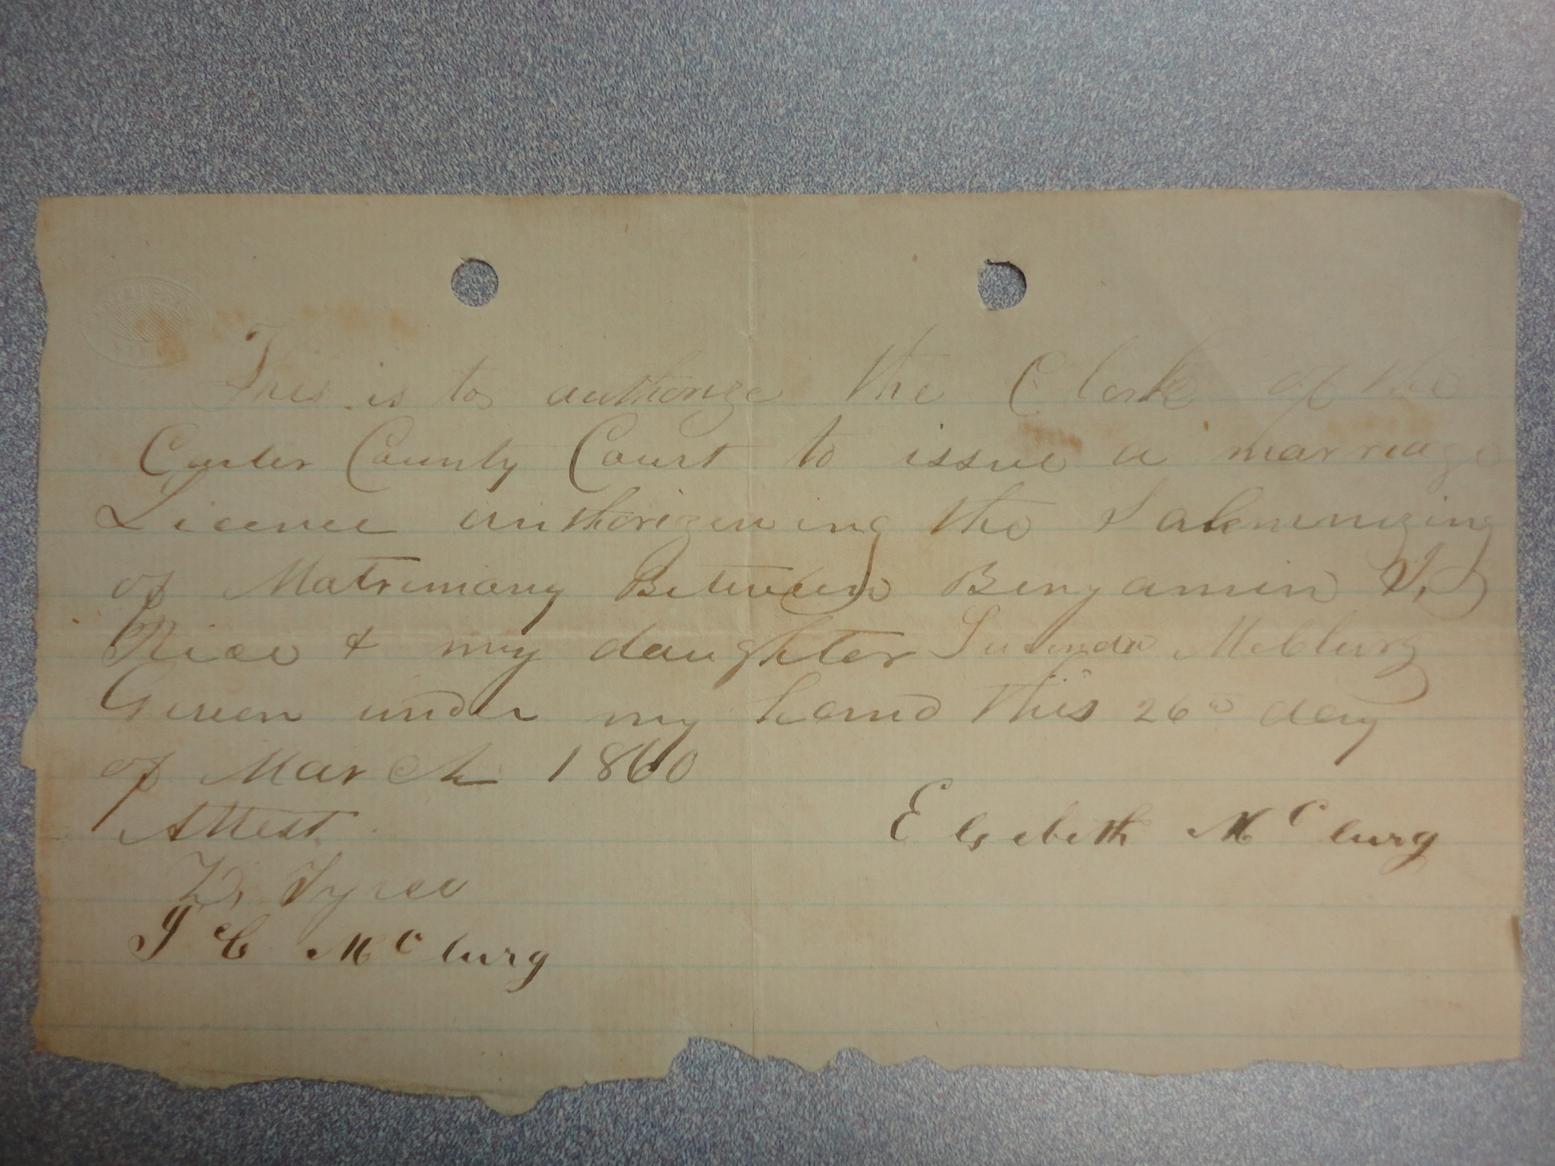 This is to authorize the Clerk of the
Carter County Court to issue a marriage
Licence authorizeing the Salemnizing
of Matrimony Between Benjamin
Rice & my daughter McClurg
Given under my hand this 26 day
of March 1860
Attest Elsebeth McClurg
Tyree
J C McClurg